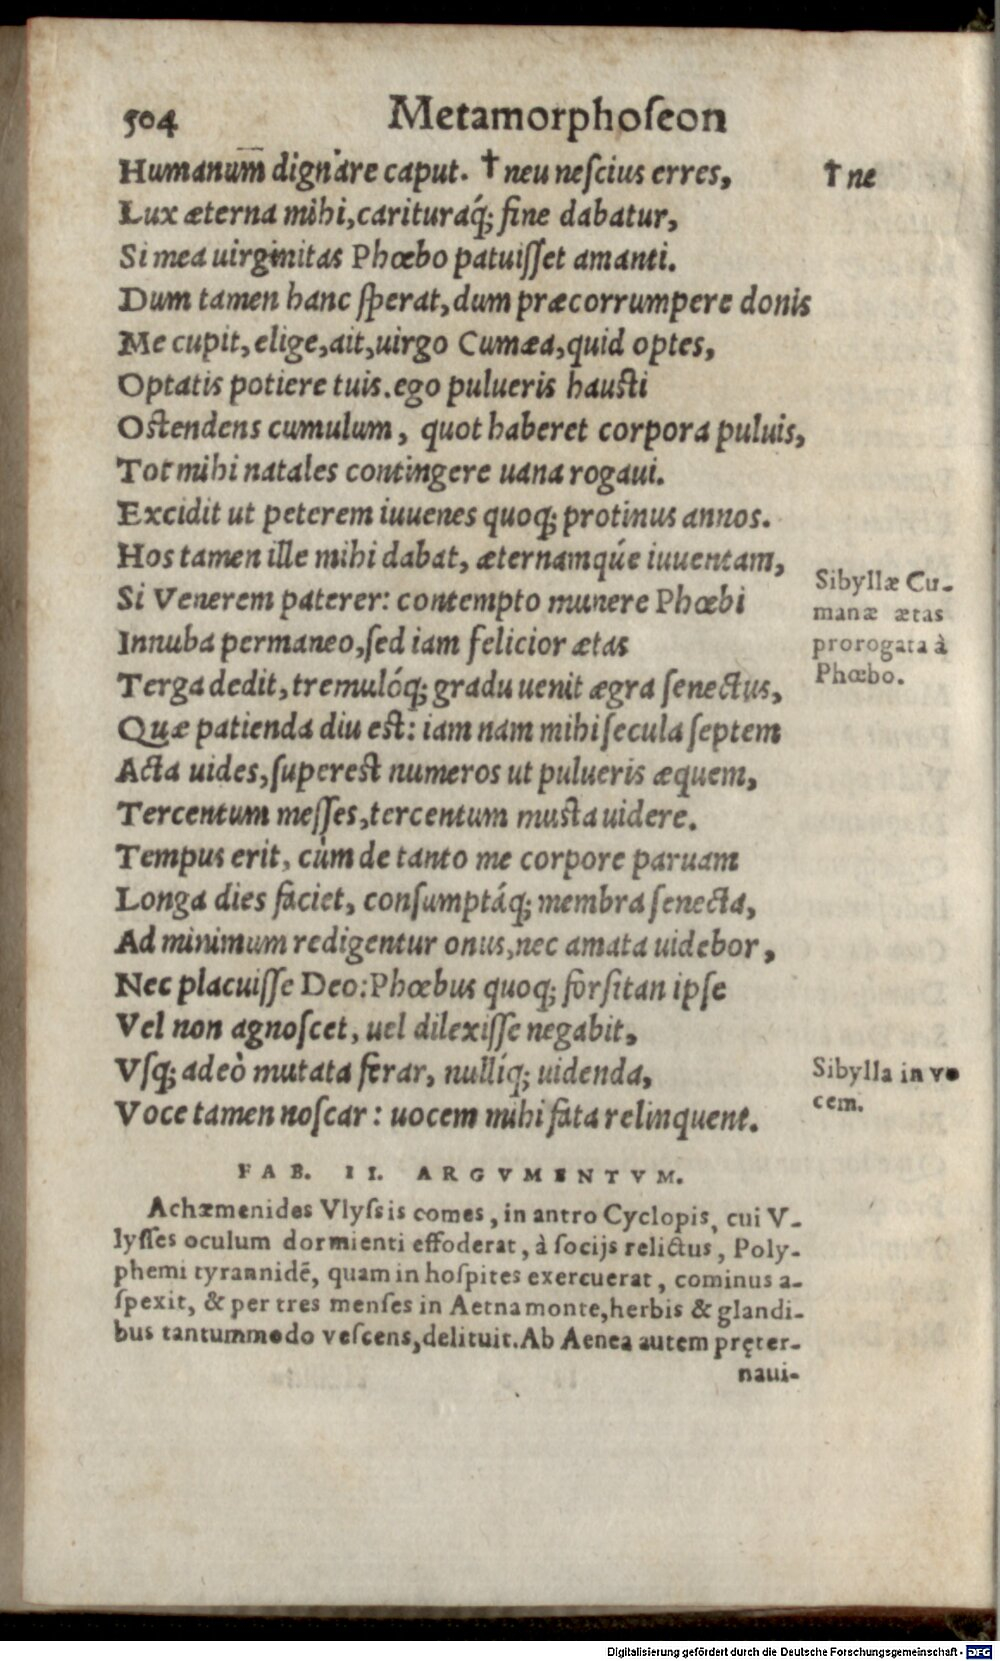 504 Metamorphoſeon
Humanum̅ dignare caput. † neu neſcius erres,
† ne
Lux æterna mihi, carituraq́; fine dabatur,
Si mea uirginitas Phœbo patuiſſet amanti.
Dum tamen hanc ſperat, dum præcorrumpere donis
Me cupit, elige, ait, uirgo Cumæa, quid optes,
Optatis potiere tuis. ego pulueris hauſti
Oſtendens cumulum, quot haberet corpora puluis,
Tot mihi natales contingere uana rogaui.
Excidit ut peterem iuuenes quoq; protinus annos.
Hos tamen ille mihi dabat, æternamqúe iuuentam,
Si Venerem paterer: contempto munere Phœbi
Innuba permaneo, ſed iam felicior ætas
Terga dedit, tremulóq; gradu uenit ægra ſenectus,
Quæ patienda diu eſt: iam nam mihi ſecula ſeptem
Acta uides, ſupereſt numeros ut pulueris æquem,
Tercentum meſſes, tercentum muſta uidere.
Tempus erit, cùm de tanto me corpore paruam
Longa dies faciet, conſumptáq; membra ſenecta,
Ad minimum redigentur onus, nec amata uidebor,
Nec placuiſſe Deo: Phœbus quoq; forſitan ipſe
Vel non agnoſcet, uel dilexiſſe negabit,
Vſq; adeò mutata ferar, nullíq; uidenda,
Voce tamen noſcar: uocem mihi fata relinquent.
Sibyllæ Cu-
manæ ætas
prorogata à
Phœbo.
Sibylla in vo
cem.
FAB. II. ARGVMENTVM.
Achæmenides Vlyſsis comes, in antro Cyclopis, cui V-
lyſſes oculum dormienti effoderat, à ſocijs relictus, Poly-
phemi tyrannidē, quam in hoſpites exercuerat, cominus a-
ſpexit, & per tres menſes in Aetna monte, herbis & glandi-
bus tantummodo veſcens, delituit. Ab Aenea autem pręter-
naui-
Digitalisierung gefördert durch die Deutsche Forschungsgemeinschaft - DFG